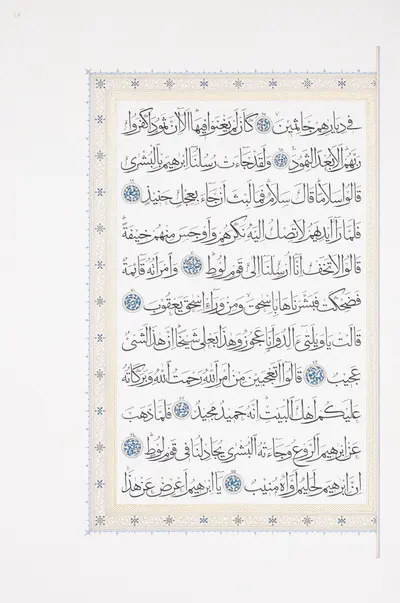 في ديارهم جاثمين كأن لم يغنوا فيها ألا إن ثمود كفروا
ربهم ألا بعدا لثمود ولقد جاءت رسلنا إبرهيم بالبشرى
قالوا سلاما قال سلام فما لبث أن جاء بعجل حنيذ
فلما رآ أيديهم لا تصل إليه نكرهم وأوجس منهم خيفة
قالوا لا تخف إنا أرسلنا إلى قوم لوط وامرأته قائمة
فضحكت فبشرناها بإسحق ومن وراء إسحق يعقوب
قالت يا ويلتى ءألد وأنا عجوز وهذا بعلي شيخا إن هذا لشئ
عجيب قالوا أتعجبين من أمر الله رحمت الله وبركاته
عليكم أهل البيت إنه حميد مجيد فلما ذهب
عن إبرهيم الروع وجاءته البشرى يجادلنا في قوم لوط
إن إبرهيم لحليم أواه منيب يا إبرهيم أعرض عن هذا